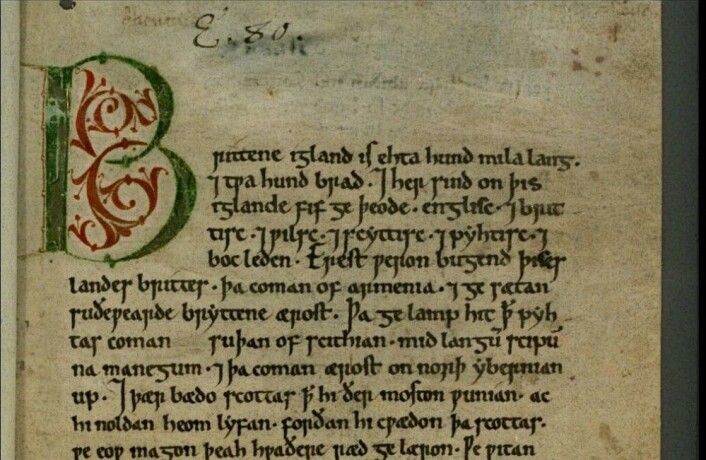 E. 80.
Brittene igland is ehta hund mila lang.
⁊ tƿa hund brad. ⁊ her sind on þis
iglande fif ge þeode. englisc. ⁊ brit
tisc. ⁊ ƿilsc. ⁊ scyttisc. ⁊ pyhtisc. ⁊
boc leden. Erest ƿeron bugend þises
landes brittes. þa coman of armenia. ⁊ ge sætan
suðeƿearde bryttene ærost. Þa ge lamp hit ꝥ pyh
tas coman suþan of scithian. mid langū scipū
na manegum. ⁊ þa coman ærost on norþ ybernian
up. ⁊ þær bædo scottas ꝥ hi ðer moston ƿunian. ac
hi noldan heom lyfan. forðan hi cƿædon þa scottas.
ƿe eoƿ magon þeah hƿaðere ræd ge læron. Ƿe ƿitan